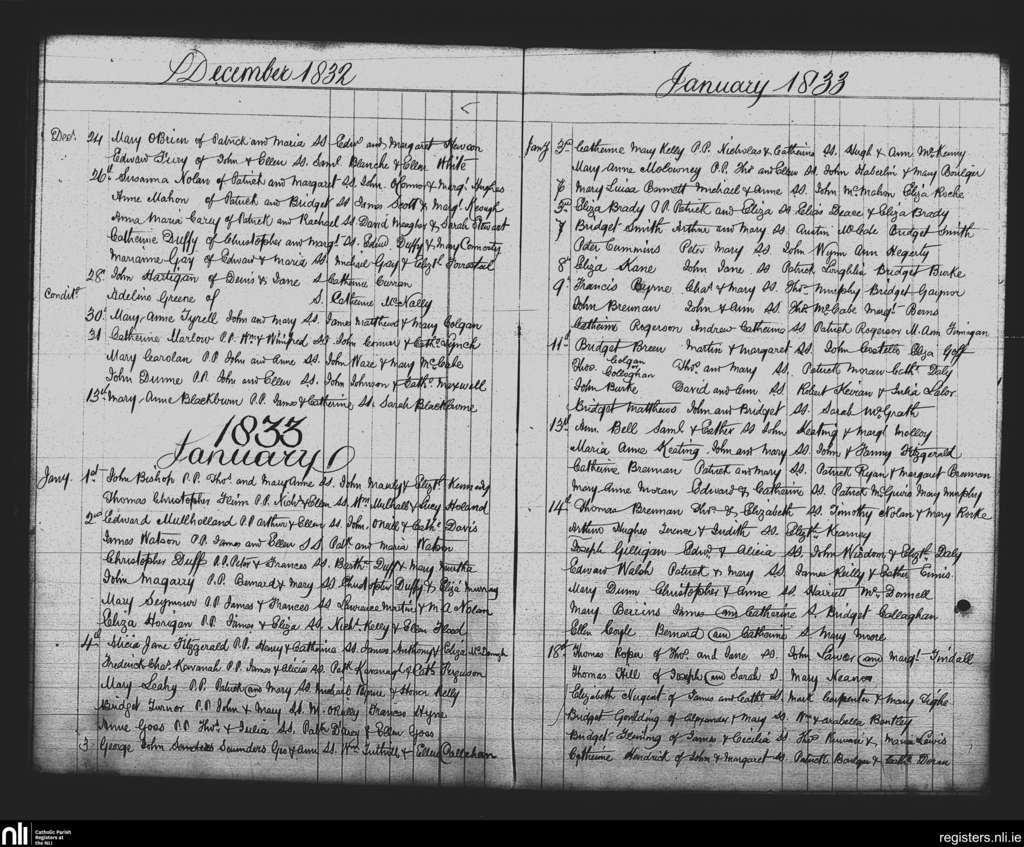 December 1832
Decr 24 Mary OBrien of Patrick and Maria SS Edwd and Margaret
Edward Fury of John & Ellen SS. Saml Blanche & Ellen White
26th Susanna Nolan of Patrick and Margaret SS. John OConnor & Margt Hughes
Anne Mahon of Patrick and Bridget SS James Scott & Margt Keough
Anna Maria Carey of Patrick and Rachael SS David Meagher & Sarah Stewart
Catherine Duffy of Christopher and Margt SS. Edwd Duffy & Mary
Marianne Gay of Edward & Maria SS Michael Gay & Elizth Forrestal
28 John Hartigan of Denis & Jane S Catherine Curran
Condite Adeline Greene of S. Catherine McNally
30 Mary Anne Tyrell John and Mary SS. James Matthews & Mary Colgan
31 Catherine Marlow P.P. Wm & Winifred SS John & Cathe Lynch
Mary Carolan P.P John and Anne SS. John Ware & Mary McCabe
John Dunne P.P. John and Ellen SS. John Johnson & Cathe Maxwell
13th Mary Anne Blackburn P.P. James & Catherine SS. Sarah Blackburne
1833
January
Jany 1st John Bishop P.P. Thos and Mary Anne SS. John Manly & Elizth Kennedy
Thomas Christopher P.P. Nichs & Ellen SS Wm Mulhall & Lucy Holand
2nd Edward Mullholland P.P Arthur & Ellen SS John ONeil & Cathe Davis
James Watson P.P James and Ellen SS Patk and Maria Watson
Christopher Duff P.P. Peter & Frances SS Barthw Duff & Mary Murtha
John Magarry P.P. Bernard & Mary SS Christopher Duffy & Eliza Murray
Mary Seymour P.P James & Frances SS Lawrence Martin & M. A Nolan
Eliza Horigan P.P James & Eliza SS Nichs Kelly & Ellen Flood
4th Alicia Jane Fitzgerald P.P. Henry & Catherine SS James Anthony & Eliza
Frederick Chas Kavanah P.P. James & Alicia SS Patk Kavanagh & Cathe Ferguson
Mary Leahy P.P. Patrick and Mary SS Michael Byrne & Honor Kelly
Bridget Turner P.P John & Mary SS M. OReilly Frances Hyne
Anne Goss P.P Thos & Julia SS. Patk Darcy & Ellen Goss
3 George John Sanders Saunders Geo & Ann SS. Wm & Ellen Callahan
January 1833
Jany 3rd Catherine Mary Kelly P.P. Nicholas & Catherine SS. Hugh & Ann McKenny
Mary Anne Molowney P.P. Thos and Ellen SS John & Mary Boulger
7 Mary Luisa Barnott Michael & Anne SS John McMahon Eliza Roche
5th Eliza Brady P.P. Patrick and Eliza SS Elias Deace & Eliza Brady
7 Bridget Smith Arthur and Mary SS Austin McCale Bridget Smith
Peter Cummins Peter Mary SS John Wynn Ann Hegerty
8 Eliza Kane John Jane SS Patrick Loughlin Bridget Burke
9 Francis Byrne Chas & Mary SS Thos Murphy Bridget Gaynor
John Brennan John & Ann SS. Thos McCabe Margt Berns
Catherine Rogerson Andrew Catherine SS Patrick Rogerson M. Ann Finnigan
11th Bridget Breen Martin & Margaret SS. John Costello Eliza Goff
Thos. Colgan Collaghan Thos and Mary SS. Patrick Moran Cathe Daly
John Burke David and Ann SS. Robert Kevian & Julia Lalor
Bridget Matthews John and Bridget SS. Sarah McGrath
13th Ann Bell Saml & Esther SS John Keating & Margt Molloy
Maria Anne Keating John and Mary SS John & Fanny Fitzgerald
Catherine Brennan Patrick and Mary SS. Patrick Ryan & Margaret Brennan
Mary Anne Moran Edward & Catherine SS. Patrick McGuire Mary Murphy
14th Thomas Brennan Thos & Elizabeth SS. Timothy Nolan & Mary Rorke
Arthur Hughes Terence & Judith SS. Elizth Kearney
Joseph Gilligan Edwd & Alicia SS. John Wisdom & Elizth Daly
Edward Walsh Patrick & Mary SS. James Reilly & Cathe Ennis
Mary Dunn Christopher & Anne SS Harriett McDonnell
Mary Berrins James and Catherine S. Bridget Callaghan
Ellen Coyle Bernard and Catherine S Mary More
18th Thomas Roper of Thos. and Jane SS. John Lawer and Margt Tindall
Thomas Hill of Joseph and Sarah S. Mary Neanor
Elizabeth Nugent of James and Cathe SS Mark Carpenter & Mary Tighe
Bridget Goulding of Alexander & Mary SS Wm & Arabella Bentley
Bridget Fleming of James & Cecilia SS Thos & Maria Lewis
Catherine Hendrick of John & Margaret SS. Patrick & Cathe Doran
nli
Catholic Parish
Registers at
the NLI
registers.nli.ie